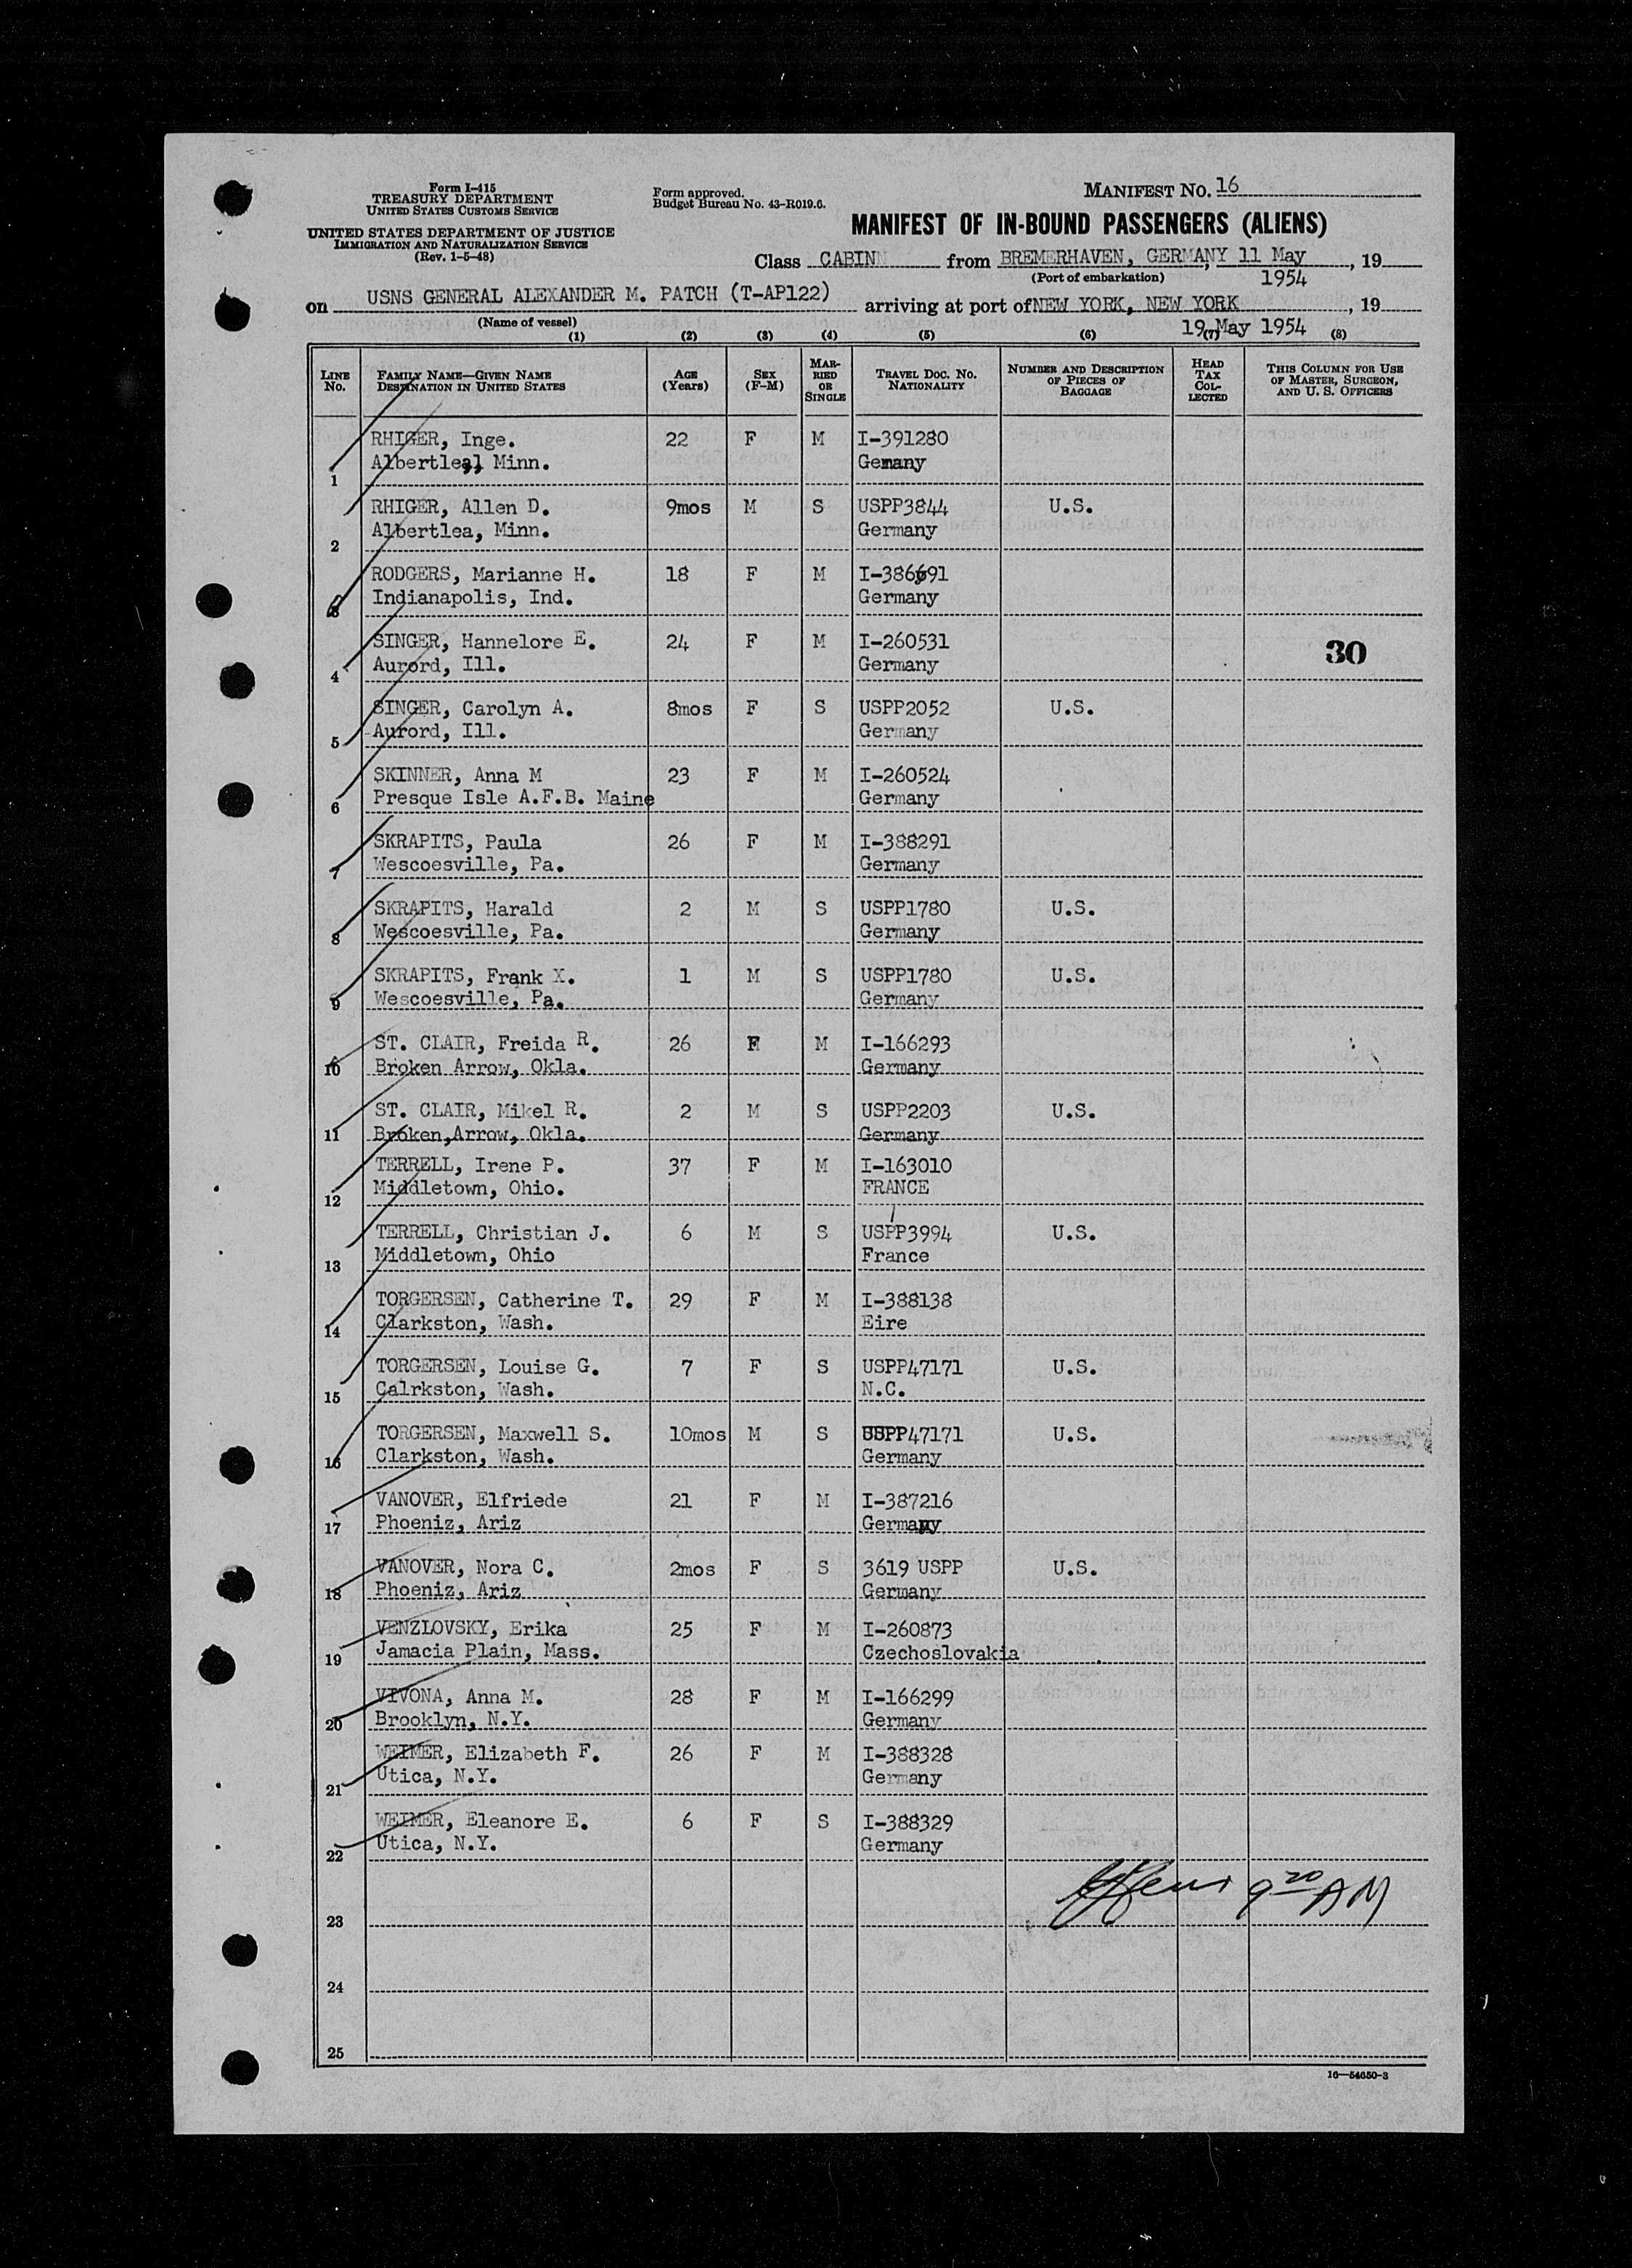 Form I-415
TREASURY DEPARTMENT
UNITED STATES CUSTOMS SERVICE
UNITED STATES DEPARTMENT OF JUSTICE
IMMIGRATION AND NATURALIZATION SERVICE
(Rev. 1-5-48)
Form approved.
Budget Bureau No. 43-R019.6.
MANIFEST NO. 16
MANIFEST OF IN-BOUND PASSENGERS (ALIENS)
Class CABIN from BREMERHAVEN, GERMANY, 11 May, 19
(Port of embarkation) 1954
on USNS GENERAL ALEXANDER M. PATCH (T-AP122) arriving at port of NEW YORK, NEW YORK, 19
(Name of vessel) 19 May 1954
(1) (2) (3) (4) (5) (6) (7) (8)
LINE NO. FAMILY NAME—GIVEN NAME DESTINATION IN UNITED STATES AGE (Years) SEX (F-M) MARRIED OR SINGLE TRAVEL DOC. NO. NATIONALITY NUMBER AND DESCRIPTION OF PIECES OF BAGGAGE HEAD TAX COLLECTED THIS COLUMN FOR USE OF MASTER, SURGEON, AND U. S. OFFICERS
RHIGER, Inge. 22 F M I-391280
1 Albertlea, Minn. Gemany
RHIGER, Allen D. 9mos M S USPP3844 U.S.
2 Albertlea, Minn. Germany
RODGERS, Marianne H. 18 F M I-386691
3 Indianapolis, Ind. Germany
SINGER, Hannelore E. 24 F M I-260531 30
4 Aurord, Ill. Germany
SINGER, Carolyn A. 8mos F S USPP2052 U.S.
5 Aurord, Ill. Germany
SKINNER, Anna M 23 F M I-260524
6 Presque Isle A.F.B. Maine Germany
SKRAPITS, Paula 26 F M I-388291
7 Wescoesville, Pa. Germany
SKRAPITS, Harald 2 M S USPP1780 U.S.
8 Wescoesville, Pa. Germany
SKRAPITS, Frank X. 1 M S USPP1780 U.S.
9 Wescoesville, Pa. Germany
ST. CLAIR, Freida R. 26 F M I-166293
10 Broken Arrow, Okla. Germany
ST. CLAIR, Mikel R. 2 M S USPP2203 U.S.
11 Broken,Arrow, Okla. Germany
TERRELL, Irene P. 37 F M I-163010
12 Middletown, Ohio. FRANCE
TERRELL, Christian J. 6 M S USPP3994 U.S.
13 Middletown, Ohio France
TORGERSEN, Catherine T. 29 F M I-388138
14 Clarkston, Wash. Eire
TORGERSEN, Louise G. 7 F S USPP47171 U.S.
15 Calrkston, Wash. N.C.
TORGERSEN, Maxwell S. 10mos M S USPP47171 U.S.
16 Clarkston, Wash. Germany
VANOVER, Elfriede 21 F M I-387216
17 Phoeniz, Ariz Germany
VANOVER, Nora C. 2mos F S 3619 USPP U.S.
18 Phoeniz, Ariz Germany
VENZLOVSKY, Erika 25 F M I-260873
19 Jamacia Plain, Mass. Czechoslovakia
VIVONA, Anna M. 28 F M I-166299
20 Brooklyn, N.Y. Germany
WEIMER, Elizabeth F. 26 F M I-388328
21 Utica, N.Y. Germany
WEIMER, Eleanore E. 6 F S I-388329
22 Utica, N.Y. Germany
9 20 AM
23
24
25
16—54650-3